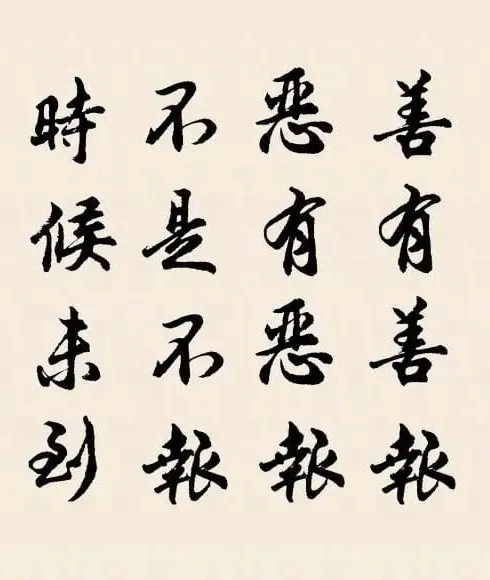 善有善報
惡有惡報
不是不報
時候未到